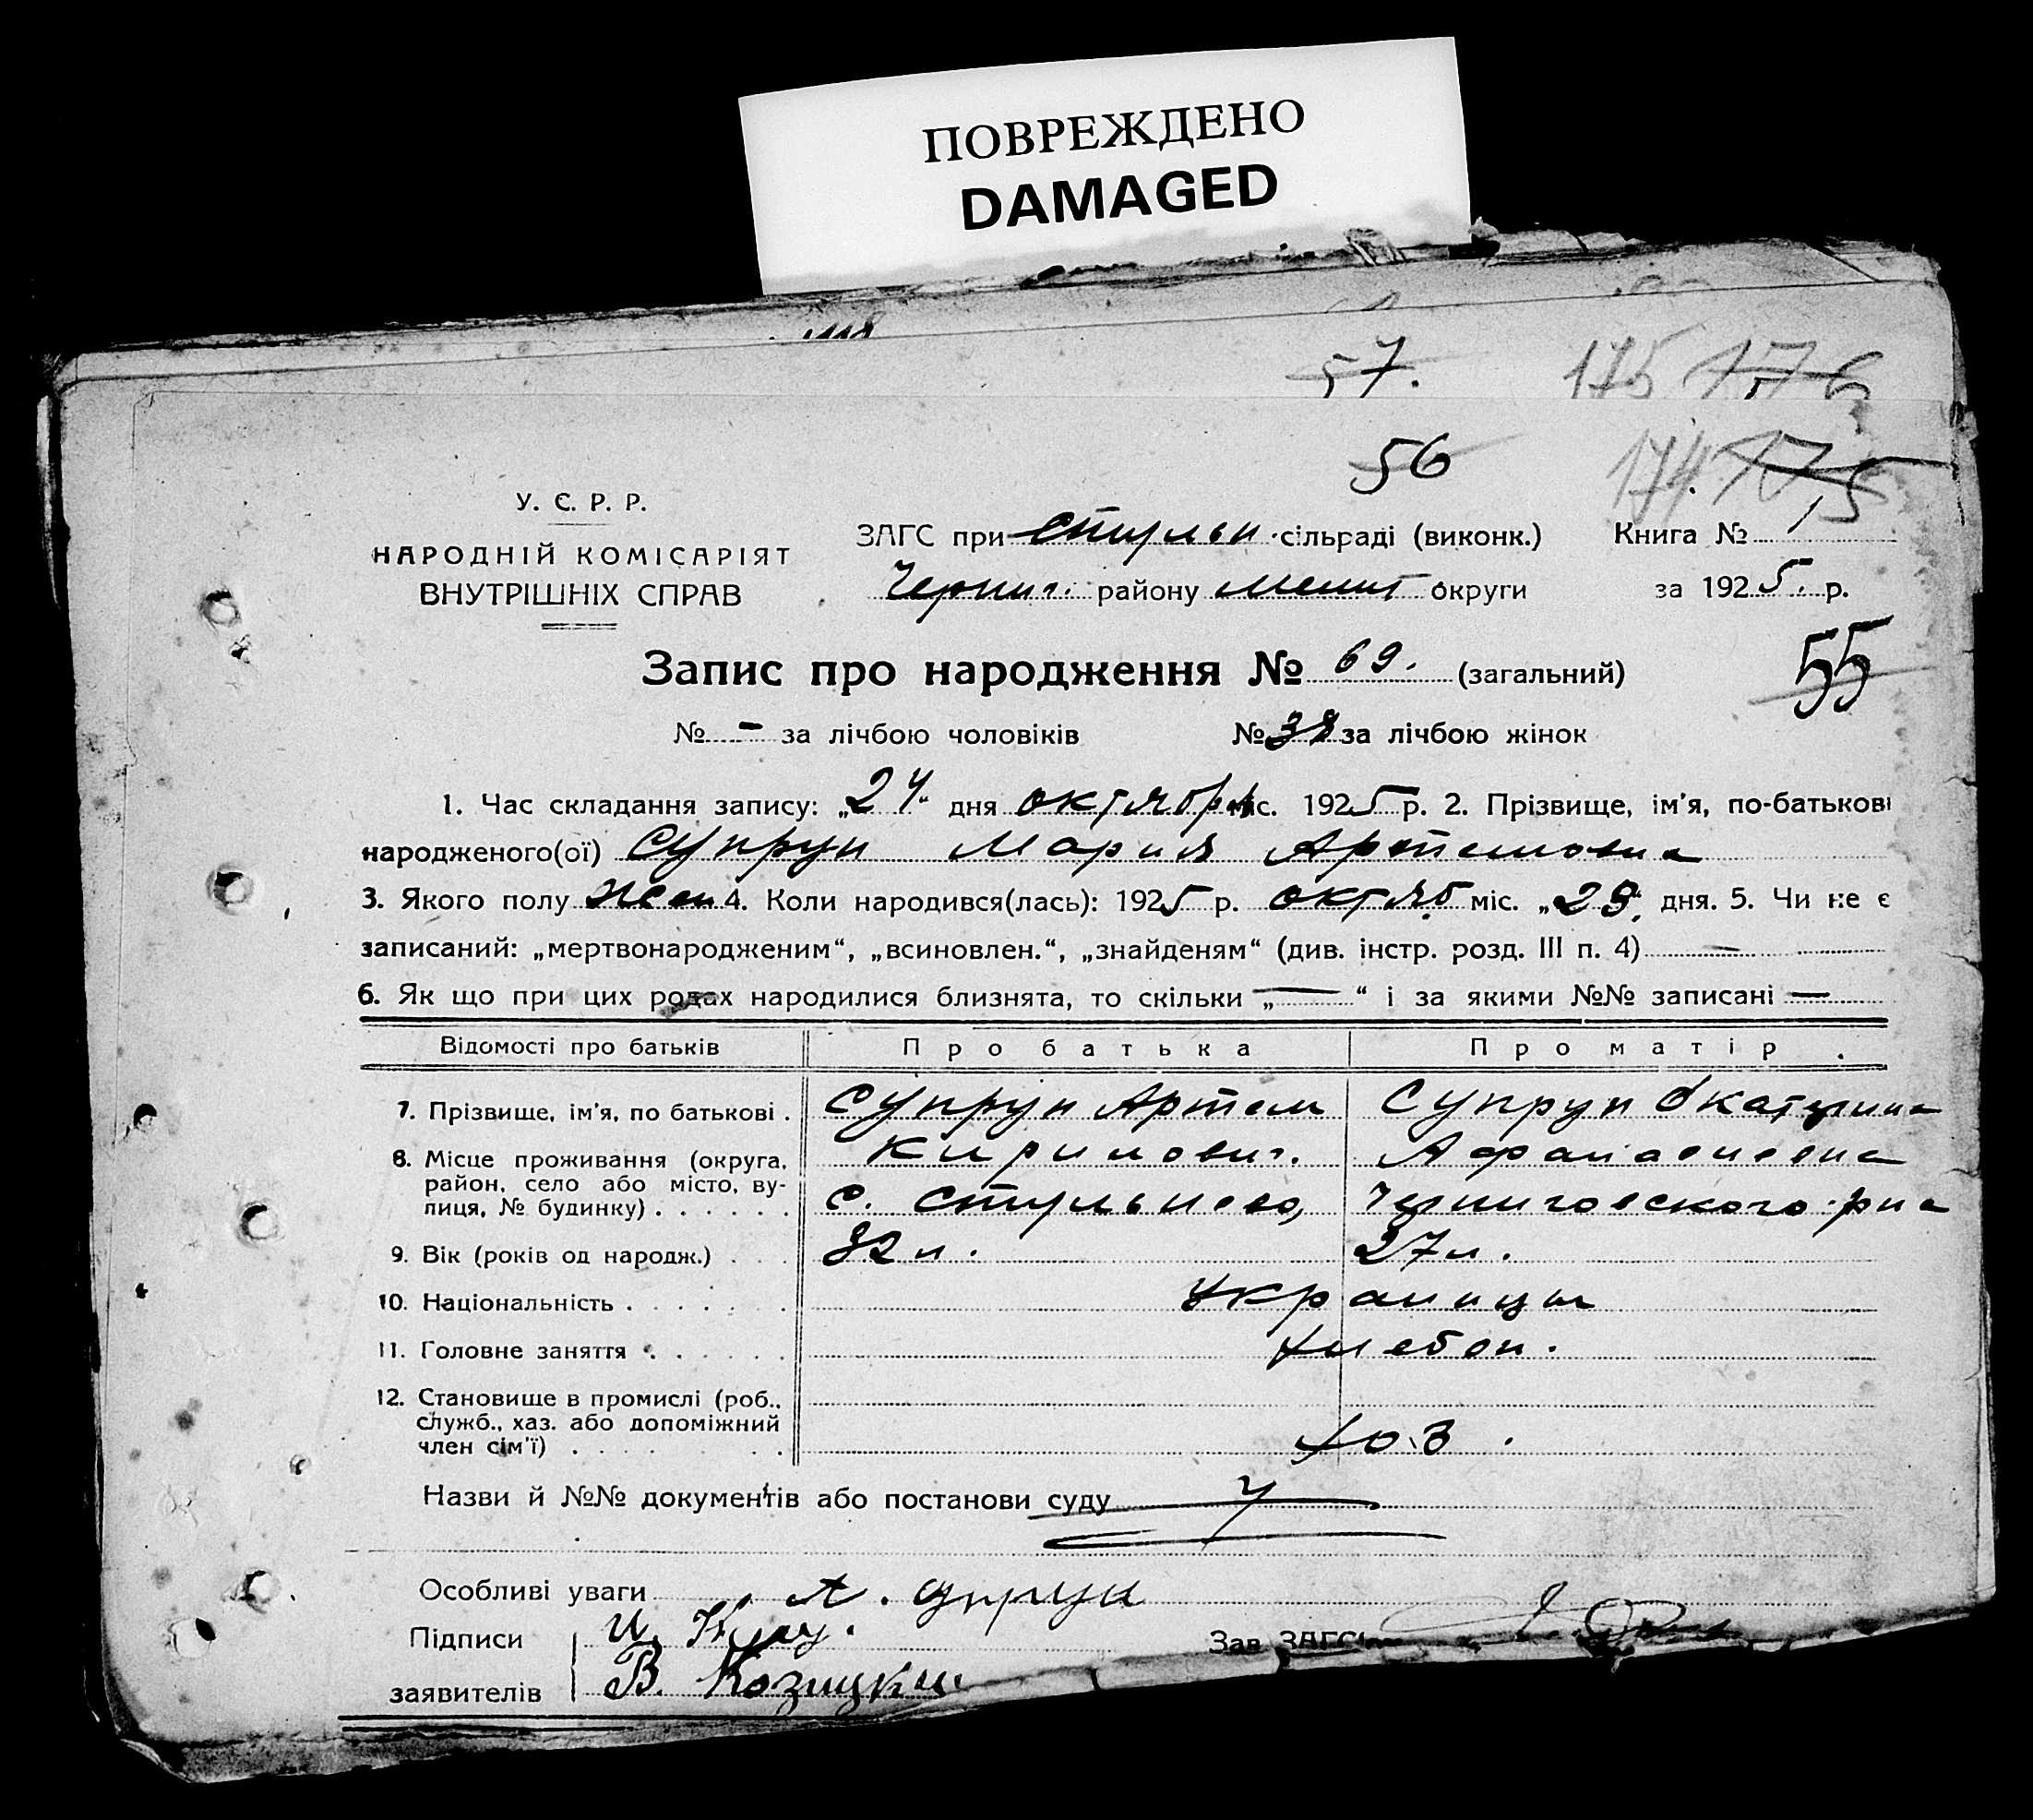 ПОВРЕЖДЕНО
DAMAGED
57.
175 176
56
174 175
У. С. Р. Р.
НАРОДНІЙ КОМІСАРІЯТ
ВНУТРІШНІХ СПРАВ
ЗАГС при Стульн. сільраді (виконк.)
Книга № 1
Черниг. району Мелит округи
за 1925. р.
Запис про народження № 69. (загальний)
55
№ - за лічбою чоловіків № 38 за лічбою жінок
1. Час складання запису: „24“ дня октября міс. 1925 р. 2. Прізвище, ім'я, по-батькові
народженого(ої) Супрун Мария Артемовна
3. Якого полу жен 4. Коли народився(лась): 1925 р. октяб міс. „23“ дня. 5. Чи не є
записаний: „мертвонародженим“, „всиновлен.“, „знайденям“ (див. інстр. розд. III п. 4) —
6. Як що при цих родах народилися близнята, то скільки „—“ і за якими №№ записані —
Відомості про батьків Про батька Про матір
7. Прізвище, ім'я, по батькові . Супрун Артем Супрун Екатерина
Кирилович. Афанасиевна
8. Місце проживання (округа,
район, село або місто, ву-
лиця, № будинку) . . . . . . с. Стульнево, Черниговского р-на
9. Вік (років од народж.) . . . 32 л. 27 л.
10. Національність . . . . . . . Украинцы
11. Головне заняття . . . . . . Хлебоп.
12. Становище в промислі (роб.,
служб., хаз. або допоміжний
член сім'ї) . . . . . . . . Хоз.
Назви й №№ документів або постанови суду
Особливі уваги А. Супрун
Підписи И.
Зав. ЗАГС'ом
заявителів В. Козицкий